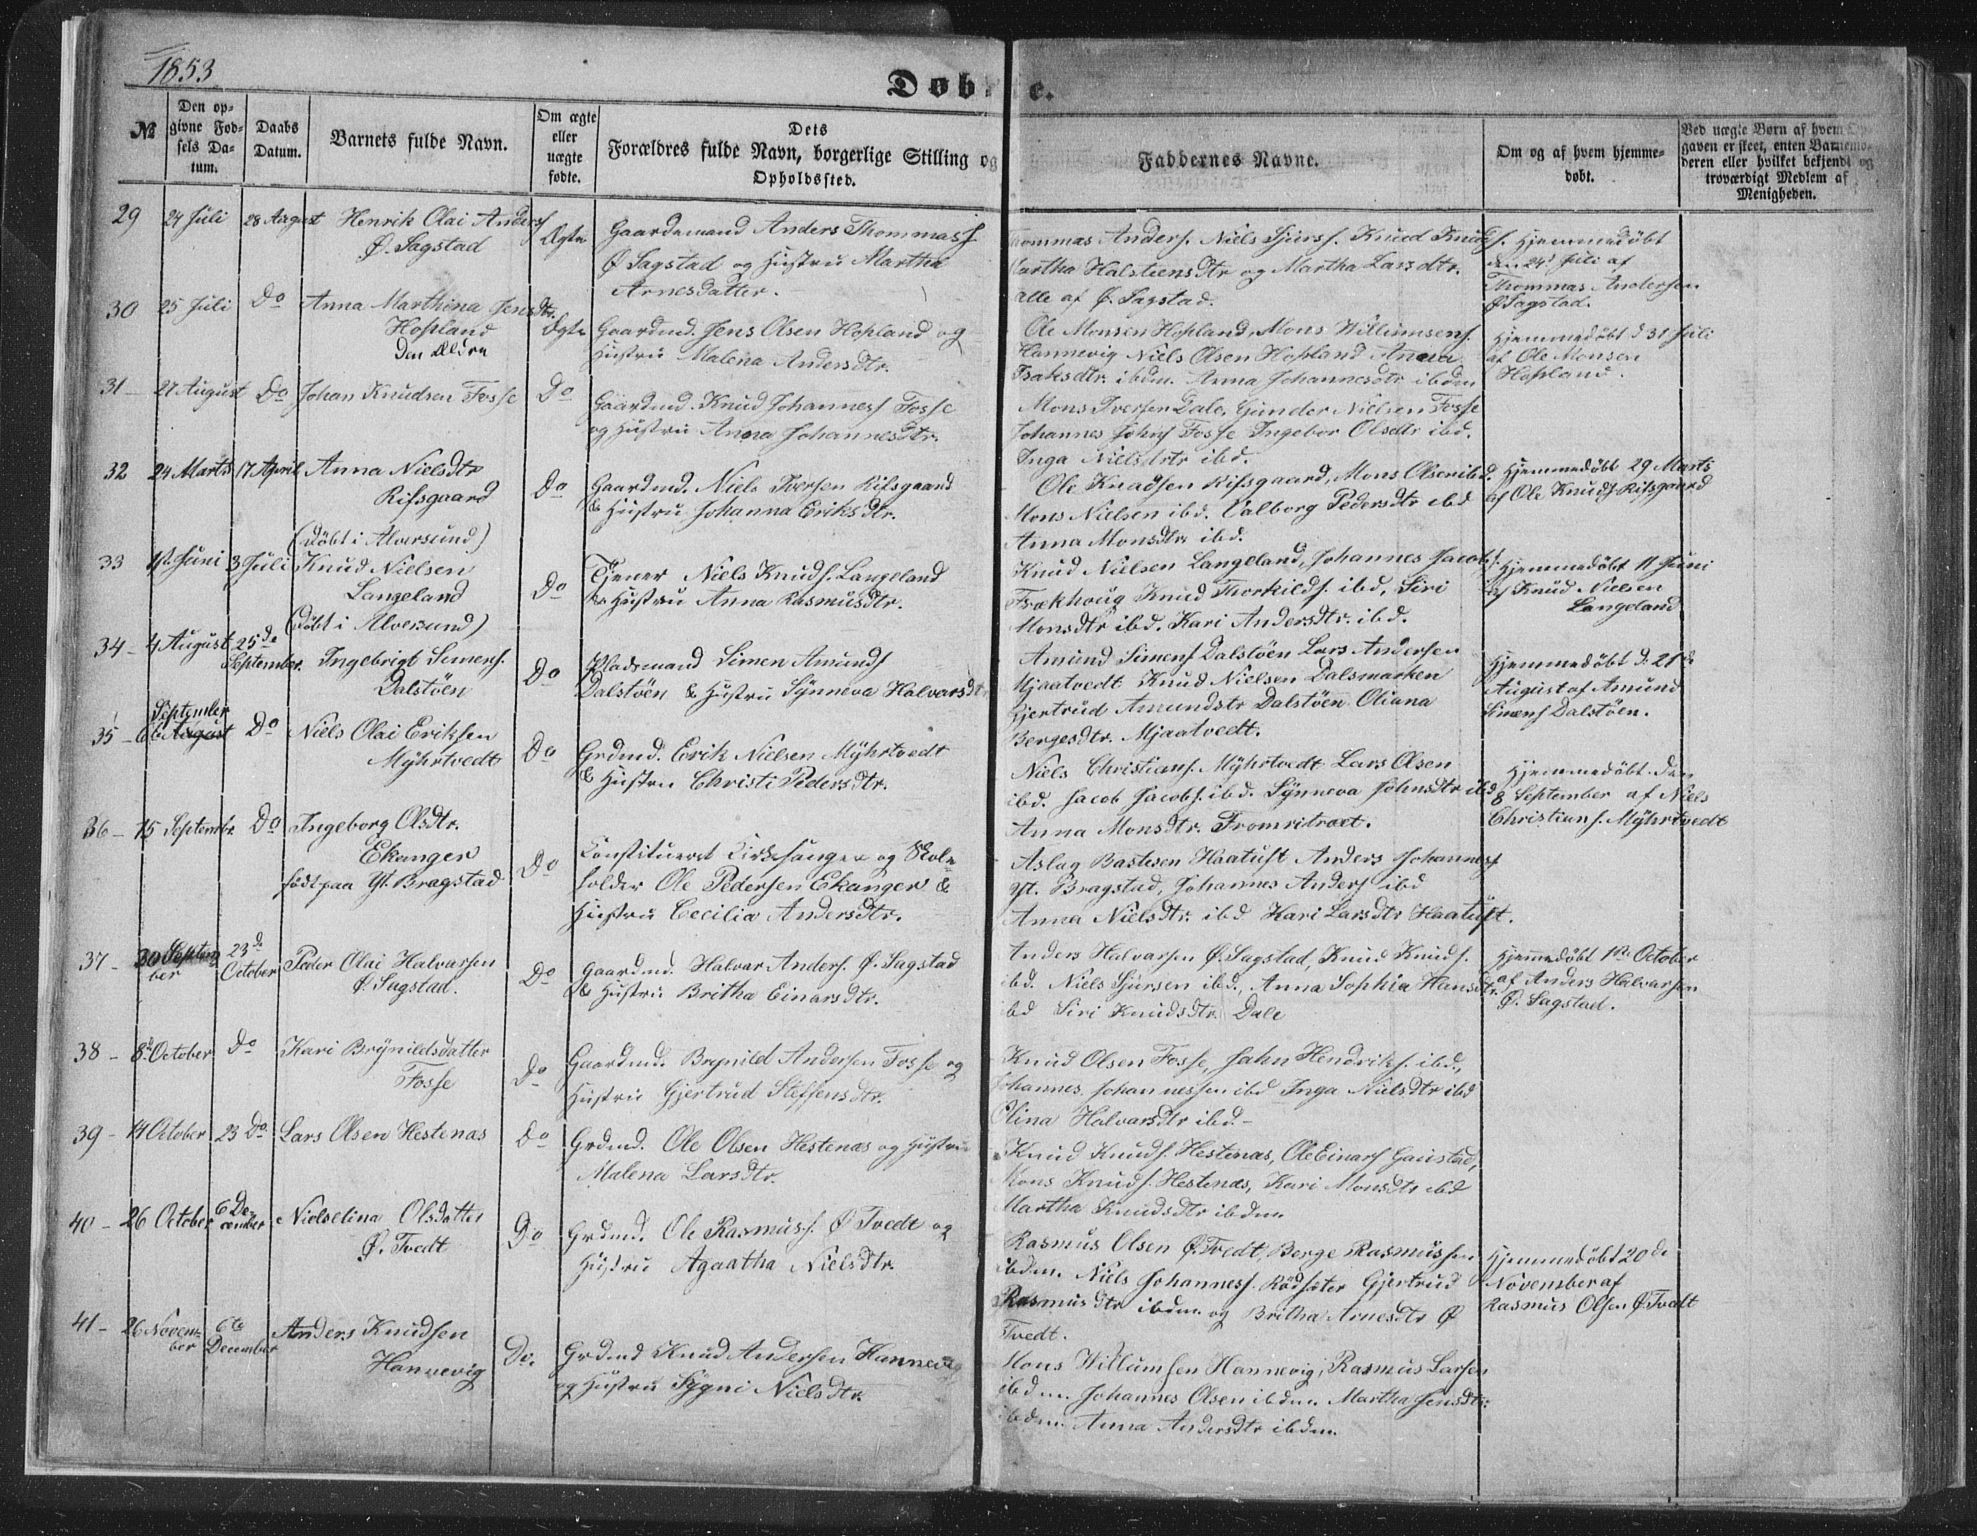 1853
Døbte.
№
Den op-
givne Fød-
sels Da-
tum.
Daabs
Datum.
Barnets fulde Navn.
Om ægte
eller
uægte
fødte.
Dets
Forældres fulde Navn, borgerlige Stilling og
Opholdssted.
Faddernes Navne.
Om og af hvem hjemme-
døbt.
Ved uægte Børn af hvem Op-
gaven er skeet, enten Barnemo-
deren eller hvilket bekjendt og
troværdigt Medlem af
Menigheden.
29
24 Juli
28 August
Henrik Olai Anders
Ø. Sagstad
Ægte
Gaardmand Anders Thommas
Ø Sagstad og Hustru Martha
Arnesdatter.
Thommas Anders. Niels Sjurs. Knud Knuds.
Martha Halsteensdtr og Martha Larsdtr.
alle af Ø. Sagstad.
Hjemmedøbt
den 24 Juli af
Thommas Andersen
Ø Sagstad.
30
25 Juli
Do
Anna Marthina Jensdtr.
Hopland
den Ældre
Ægte
Gaardmd. Jens Olsen Hopland og
Hustru Malena Andersdtr.
Ole Monsen Hopland, Mons Willumsen
Hannevig Niels Olsen Hopland Anna
Isaksdtr. ibdm. Anna Johannesdtr ibdm
Hjemmedøbt d 31 Juli
af Ole Monsen
Hopland.
31 -
21 August
Do
Johan Knudsen Fosse
Do
Gaardmd. Knud Johannes Fosse
og Hustru Anna Johannesdtr.
Mons Iversen Dale, Gunder Nielsen Fosse
Johannes Johns Fosse Ingebor Olsdtr ibd.
Inga Nielsdtr ibd.
32
24 Marts
17 April
Anna Nielsdtr
Risgaard
(Døbt i Alversund)
Do
Gaardmd. Niels Iversen Risgaard
& Hustru Johanna Eriksdtr.
Ole Knudsen Risgaard, Mons Olsen ibd.
Mons Nielsen ibd. Valborg Pedersdtr ibd
Anna Monsdtr ibd.
Hjemmedøbt 29 Marts
af Ole Knuds Risgaard
33
1st Juni
3 Juli
Knud Nielsen
Langeland
(Døbt i Alversund)
Do
Tjener Niels Knuds. Langeland
& Hustru Anna Rasmusdtr.
Knud Nielsen Langeland, Johannes Jacobs
Frækhoug Knud Thorkilds. ibd, Siri
Monsdtr ibd. Kari Andersdtr. ibd.
Hjemmedøbt 11 Juni
af Knud Nielsen
Langeland
34 -
4 August
25de
September
Ingebrigt Simens.
Dalstöen
Do
Pladsmand Simen Amunds
Dalstöen & Hustru Synneva Halvorsdtr
Amund Simens Dalstöen Lars Andersen
Mjaatvedt Knud Nielsen Dalsmarken
Gjertrud Amundsdtr Dalstöen Oliana
Bergesdtr. Mjaatvedt.
Hjemmedøbt d. 21de
August af Amund
Simens Dalstöen.
35 -
September
6te August
Do
Niels Olai Eriksen
Myhrtvedt
Do
Grdmd. Erik Nielsen Myhrtvedt
& Hustru Christi Pedersdtr.
Niels Christians. Myhrtvedt Lars Olsen
ibd. Jacob Jacobs. ibd. Synneva Johnsdtr ibd
Anna Monsdtr. Fromritræt.
Hjemmedøbt den
8 September af Niels
Christians. Myhrtvedt
36 -
15 Septembr.
Do
Ingeborg Olsdtr.
Ekanger
født paa Yt. Bragstad
Do
Constitueret Kirkesanger og Skole-
holder Ole Pedersen Ekanger &
Hustru Cecilia Andersdtr.
Aslag Bastesen Haatuft Anders Johannes
Yt. Bragstad, Johannes Anders ibd
Anna Nielsdtr. ibd Kari Larsdtr Haatuft.
37 -
30 Septem
ber
23de
October
Peder Olai Halvorsen
Ø. Sagstad.
Do
Gaardmd. Halvor Anders. Ø. Sagstad
& Hustru Britha Einarsdtr.
Anders Halvorsen Ø. Sagstad, Knud Knuds.
ibd. Niels Sjursen ibd., Anna Sophia Hansdtr.
ibd Siri Knudsdtr Dale
Hjemmedøbt 1ste October
af Anders Halvorsen
Ø. Sagstad.
38 -
8de October
Do
Kari Brynildsdatter
Fosse
Do
Gaardmd. Brynild Andersen Fosse og
Hustru Gjertrud Steffensdtr.
Knud Olsen Fosse, John Hendriks. ibd.,
Johannes Johannessen ibd Inga Nielsdtr ibd
Olina Halvorsdtr ibd. -
39 -
14 October
23 Do
Lars Olsen Hestenæs
Do
Grdmd. Ole Olsen Hestenæs og Hustru
Malena Larsdtr.
Knud Knuds. Hestenæs, Ole Einars Gaustad,
Mons Knuds. Hestenæs, Kari Monsdtr ibd
Martha Knudsdtr ibdm.
40 -
26 October
6 De-
cember
Nielselina Olsdatter
Ø. Tvedt
Do
Grdmd. Ole Rasmuss. Ø Tvedt og
Hustru Agaatha Nielsdtr
Rasmus Olsen Ø. Tvedt, Berge Rasmussen
ibdm. Niels Johanness. Rödseter Gjertrud
Rasmusdtr ibdm. og Britha Arnesdtr Ø
Tvedt.
Hjemmedøbt 20de
November af
Rasmus Olsen Ø. Tvedt
41 -
26 Novem-
ber
6te
December
Anders Knudsen
Hannevig
Do.
Grdmd Knud Andersen Hannevig
og Hustru Sygni Nielsdtr.
Mons Willumsen Hannevig, Rasmus Larsen
ibdm. Johannes Olsen ibdm. Martha Jensdtr.
ibdm Anna Andersdtr ibdm.